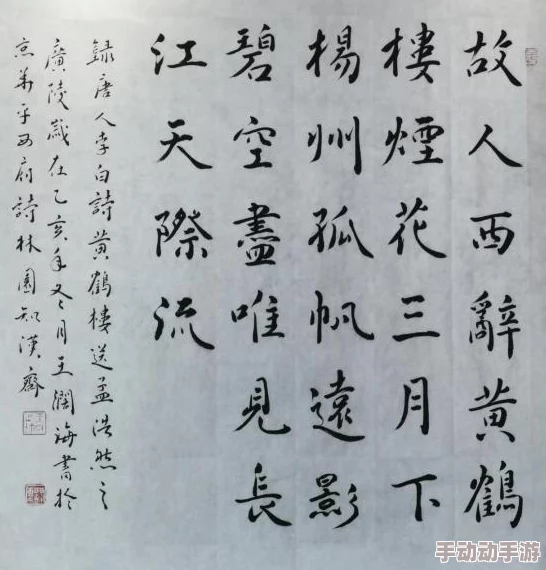 故人西辭黃鶴
樓煙花三月下
揚州孤帆遠影
碧空盡唯見長
江天際流
錄唐人李白詩黃鶴樓送孟浩然之
廣陵歲在乙亥年又二月王闊海書於
京華平西府詩林園知漢齋
手动动手游